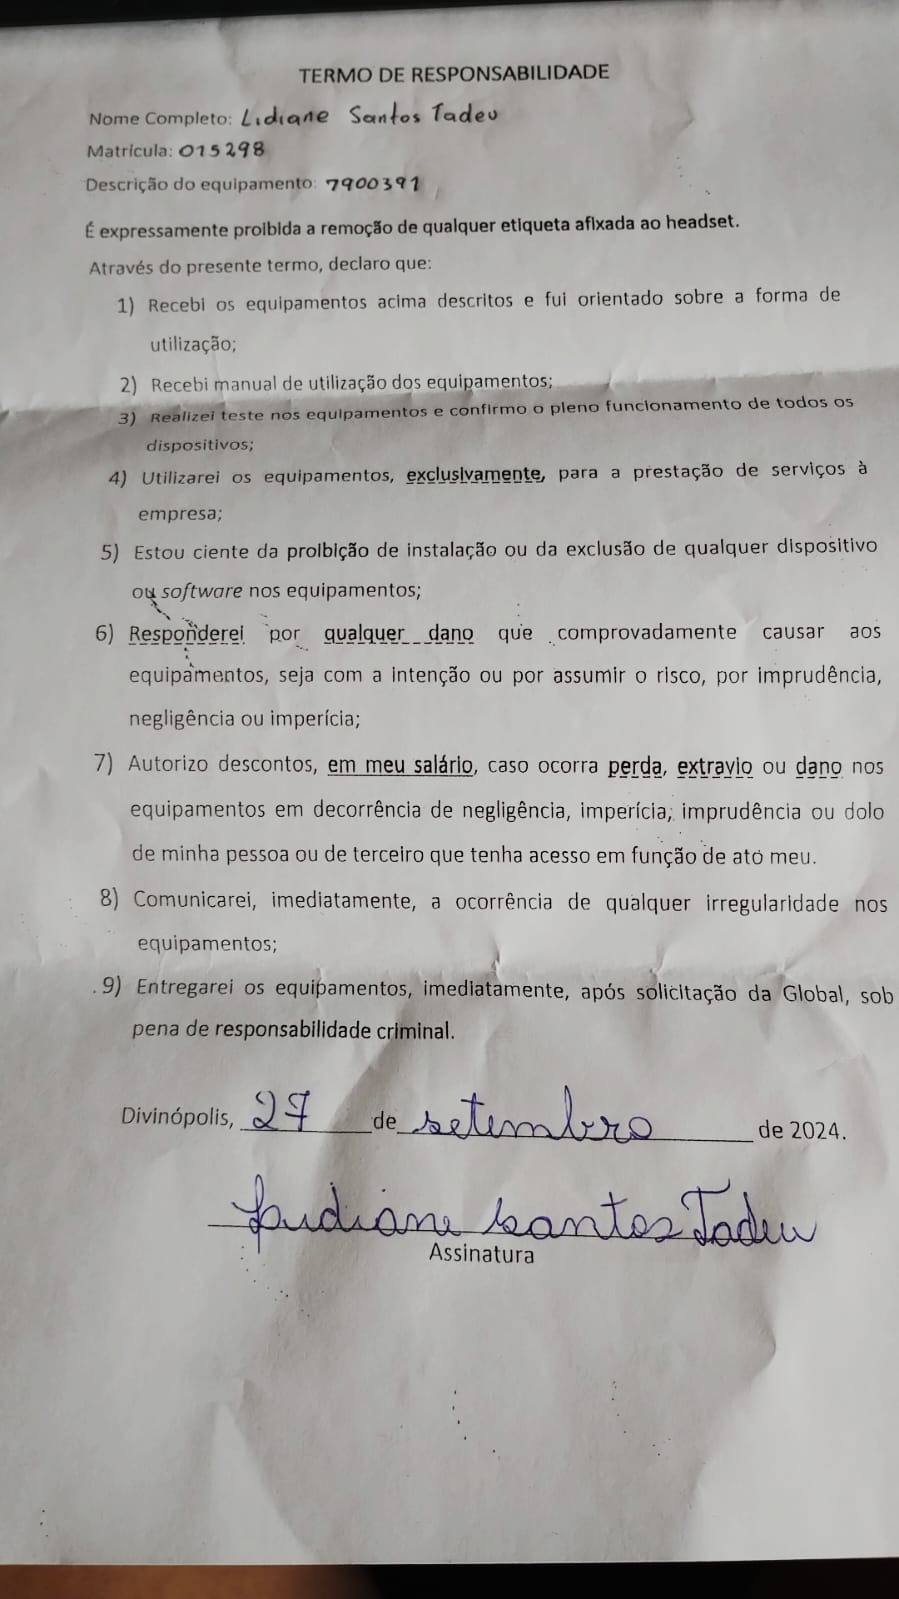 TERMO DE RESPONSABILIDADE
Nome Completo: Lidiane Santos Tadeu
Matrícula: 015298
Descrição do equipamento: 7900391
É expressamente proibida a remoção de qualquer etiqueta afixada ao headset.
Através do presente termo, declaro que:
1) Recebi os equipamentos acima descritos e fui orientado sobre a forma de
utilização;
2) Recebi manual de utilização dos equipamentos;
3) Realizei teste nos equipamentos e confirmo o pleno funcionamento de todos os
dispositivos;
4) Utilizarei os equipamentos, exclusivamente, para a prestação de serviços à
empresa;
5) Estou ciente da proibição de instalação ou da exclusão de qualquer dispositivo
ou software nos equipamentos;
6) Responderei por qualquer dano que comprovadamente causar aos
equipamentos, seja com a intenção ou por assumir o risco, por imprudência,
negligência ou imperícia;
7) Autorizo descontos, em meu salário, caso ocorra perda, extravio ou dano nos
equipamentos em decorrência de negligência, imperícia, imprudência ou dolo
de minha pessoa ou de terceiro que tenha acesso em função de ato meu.
8) Comunicarei, imediatamente, a ocorrência de qualquer irregularidade nos
equipamentos;
9) Entregarei os equipamentos, imediatamente, após solicitação da Global, sob
pena de responsabilidade criminal.
Divinópolis, 27 de setembro de 2024.
Lidiane Santos Tadeu
Assinatura